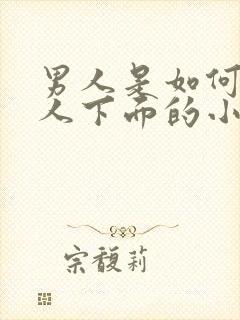 男人是如何
人下面的小
宗馥莉